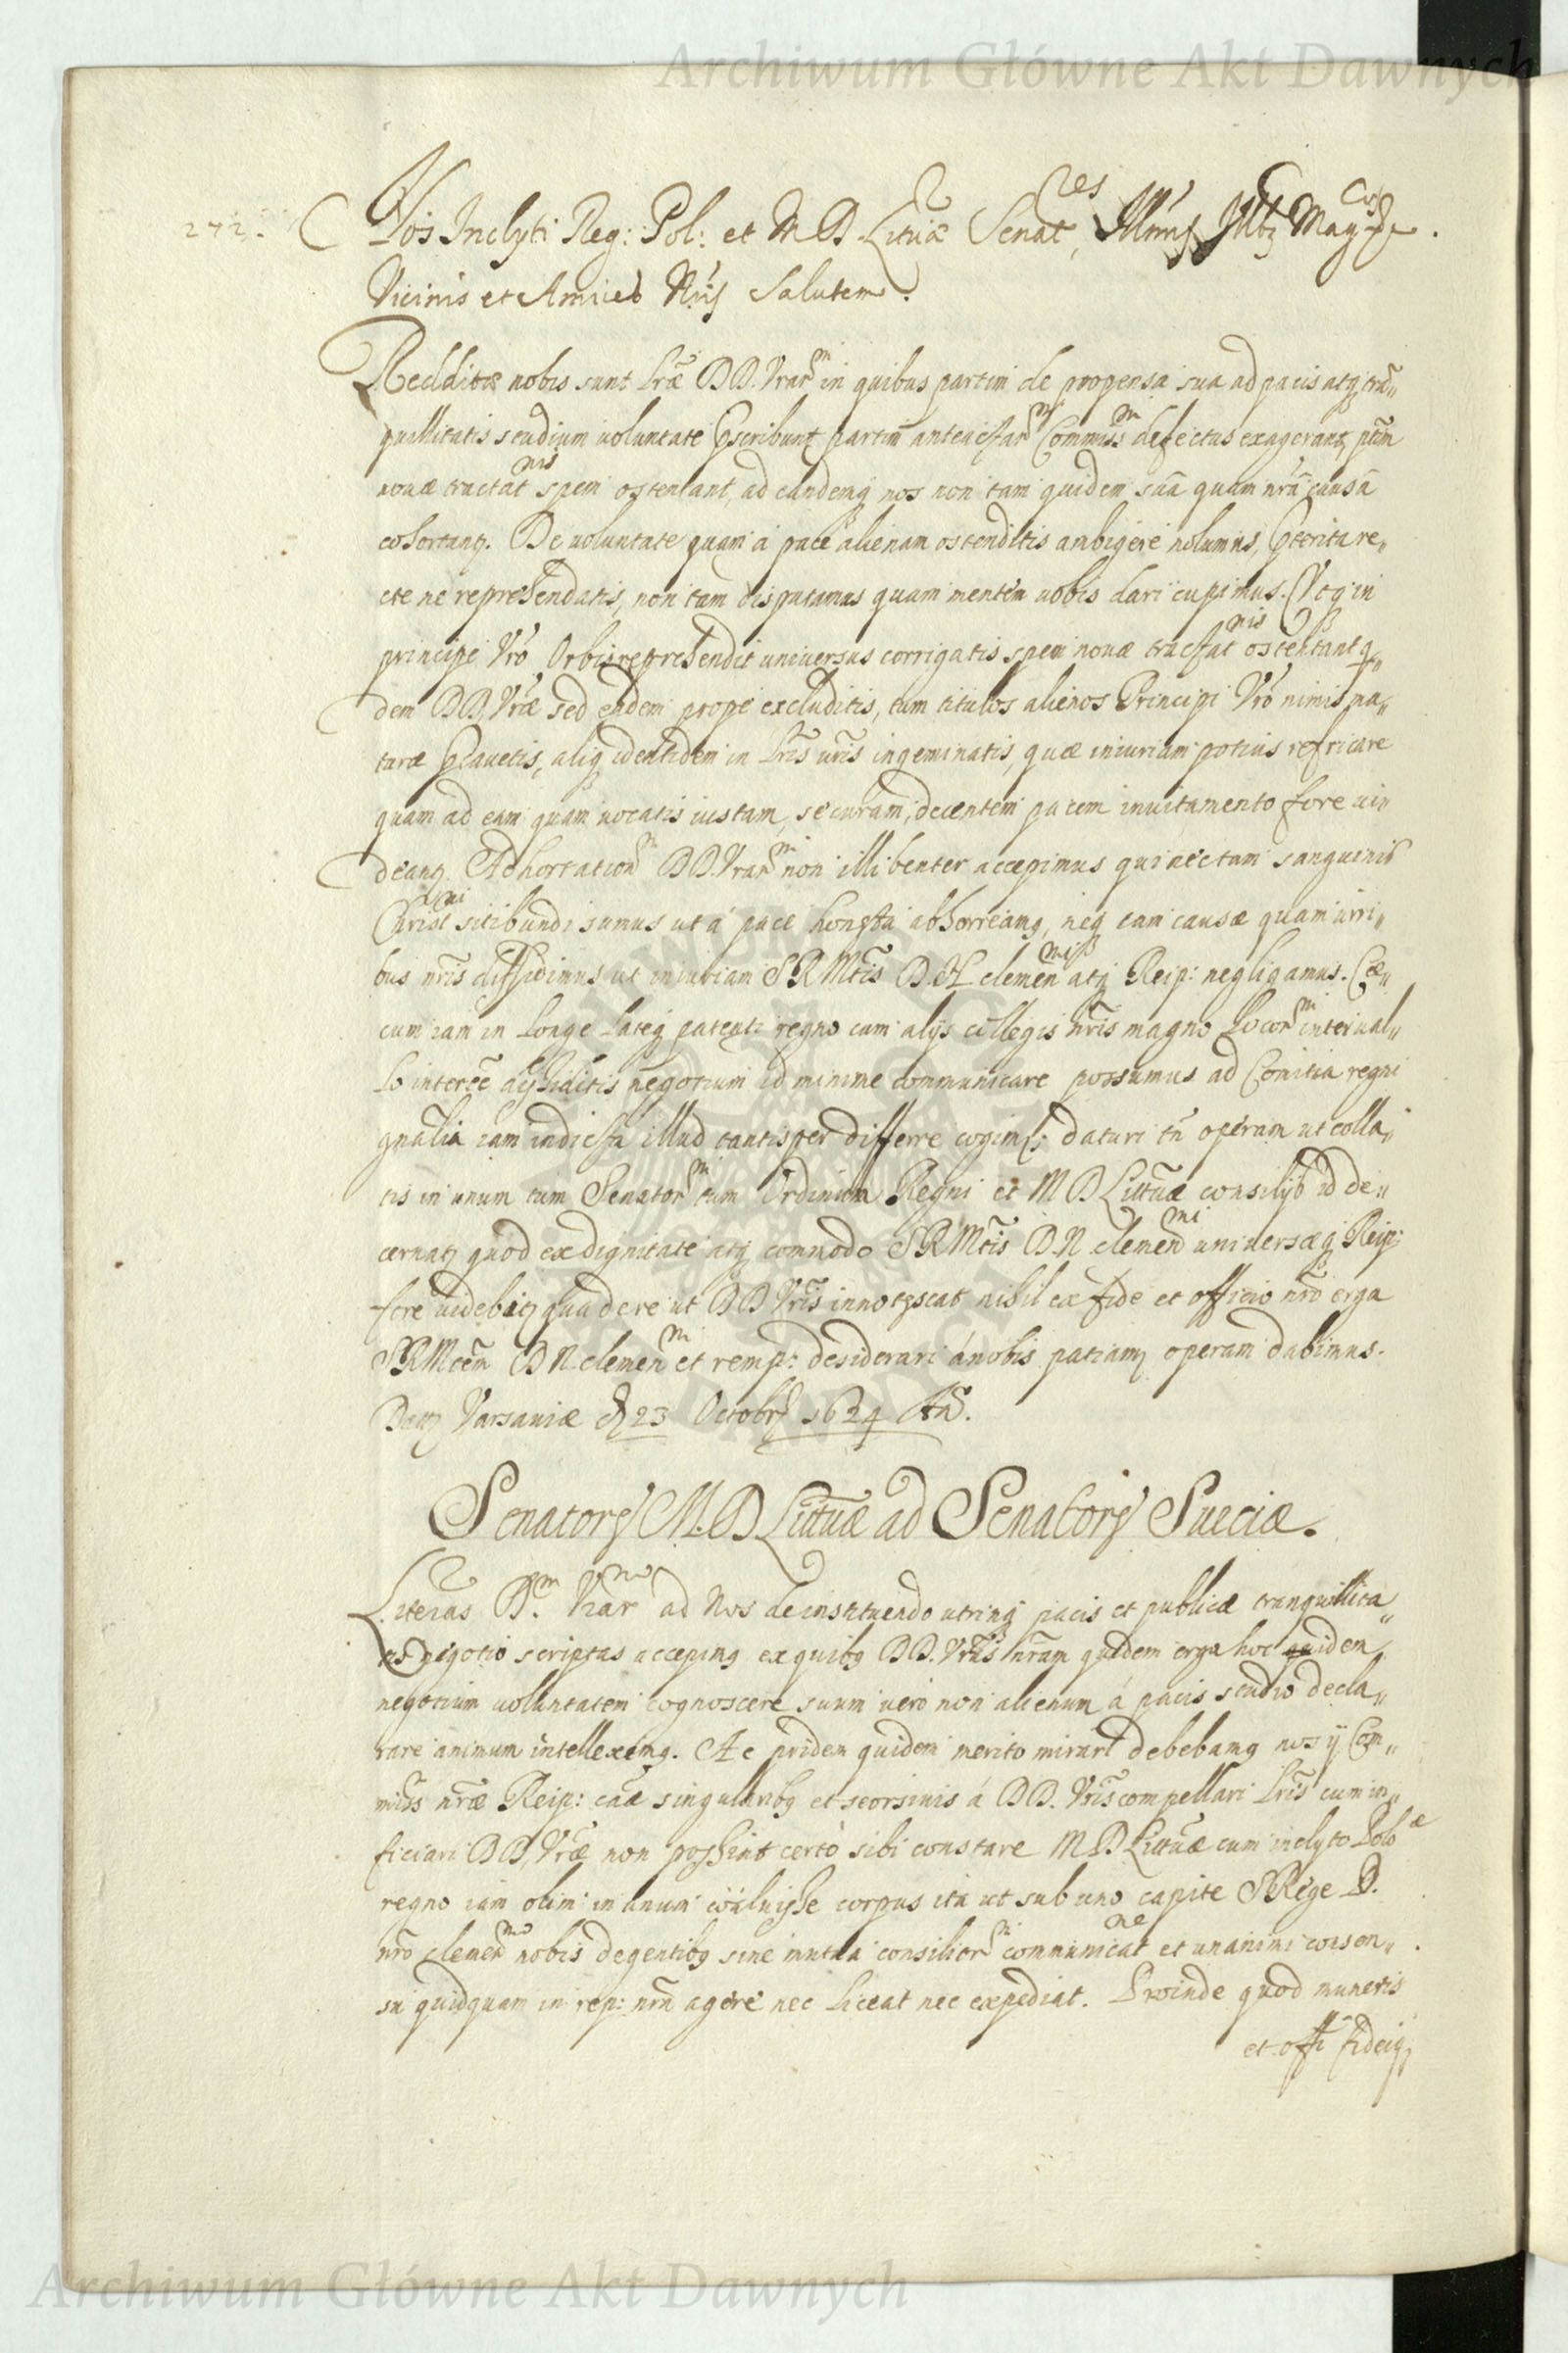 Archiwum Główne Akt Dawnych
272.
Nos Inclyti Reg: Pol: et M D Lituæ Senat^res, Mag^cis
Vicinis et Amicis Nris Salutem.
Redditæ nobis sunt lræ DD. Vrar^m in quibus partim de propensa sua ad pacis atq tra„
quillitatis studium voluntate pscribunt partim anteactar^m Commiss^m defectus exagerant, ptim
novæ tractat^nis spem ostentant, ad eandemq nos non tam quidem suã quam nrã causã
cohortant. De voluntate quam a pace alienam ostenditis ambigere nolumus, pterita re„
cte ne reprehendatis, non tam disputamus quam mentem vobis dari cupimus. Vt q in
principe Vro Orbis reprehendit universus corrigatis spem novæ tractat^nis ostentant q„
dem DD. Vræ sed eadem prope excluditis, tum titulos alienos Principi Vro nimis pa„
taræ, aliq identidem in lris vris ingeminatis, quæ iniuriam potius refricare
quam ad eam quam vocatis iustam, securam, decentem pacem invitamento fore vi„
deant. Adhortation^m DD. Vrar^m non illibenter accepimus qui nec tam sanguinis
Christ^ni sitibundi sumus ut á pace honesta abhorreamq, neq tam causæ quam viri„
bus nris diffidimus ut iniuriam SRMtis D. N clemen^miss atq Reip: negligamus. Cæ„
cum iam in longe lateq patenti regno cum alijs collegis nris magno locor^m interval„
lo dissiditis negotium id minime communicare possumus ad Comitia regni
gnalia iam indicta illud tantisper differre cogimq; daturi tn operam ut colla„
tis in unum tum Senator^m tum Ordinum Regni et M D Littuæ consilijs id de„
cernatq quod ex dignitate atq commodo SRMtis D. N clemen^mi universæq Reip:
fore videbitq qua de re ut DD Vris innotescat nihil ex fide et officio nro erga
SRMtem D N clemen^m et remp: desiderari á nobis patiamq operam dabimus.
Datq Varsaviæ d 23 Octobrs 1624 An.
Senatores M. D Littuæ ad Senatores Sueciæ.
Literas D^m Vrar^m ad Nos de instituendo utrinq pacis et publicæ tranquillita„
tis negotio scriptas accepimq ex quibq DD. Vras nram quidem erga hoc quidem
negotium voluntatem cognoscere suum vero non alienum á pacis studio decla„
rare animum intelleximq. Ac pridem quidem merito mirari debebamq nos ij Com„
miss nræ Reip: caã singularibq et seorsivis á DD. Vris compellari lris cum in„
ficiari DD. Vræ non possint certò sibi constare M D. Littuæ cum inclyto Polo^æ
regno iam olim in unum coaluisse corpus ita ut sub uno capite S Rege D.
nro clemen^mo nobis degentibq sine mutua consilior^m communicat^ne et unanimi consen„
su quidquam in rep: nra agere nec liceat nec expediat. Proinde quod muneris
et offi fideiq
Archiwum Główne Akt Dawnych